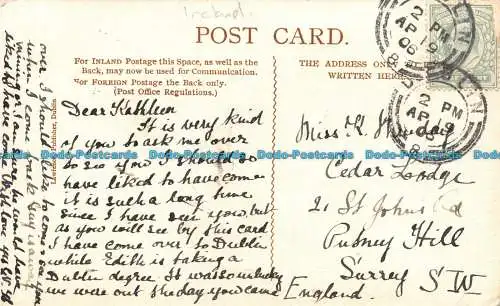 Ireland
POST CARD.
For INLAND Postage this Space, as well as the
Back, may now be used for Communication.
For FOREIGN Postage the Back only.
(Post Office Regulations.)
THE ADDRESS ONLY
WRITTEN HERE
DUBLIN
2 PM
AP 19
06
8
DUBLIN
2 PM
AP 19
06
8
Dear Kathleen
It is very kind
of you to ask me over
to see you I should so
have liked to have come
it is such a long time
since I have seen you, but
as you will see by this card
I have come over to Dublin
while Edith is taking a
Dublin degree. It was so unlucky
we were out the day you came
over I should
to come
see you
when I come back
liked to have come. With love
Miss K.
Cedar Lodge
21 St Johns Rd
Putney Hill
Surrey S W
England.
Publisher, Dublin
Dodo-Postcards Dodo-Postcards Dodo-Postcards Dodo-Postcards Dodo-Postcards